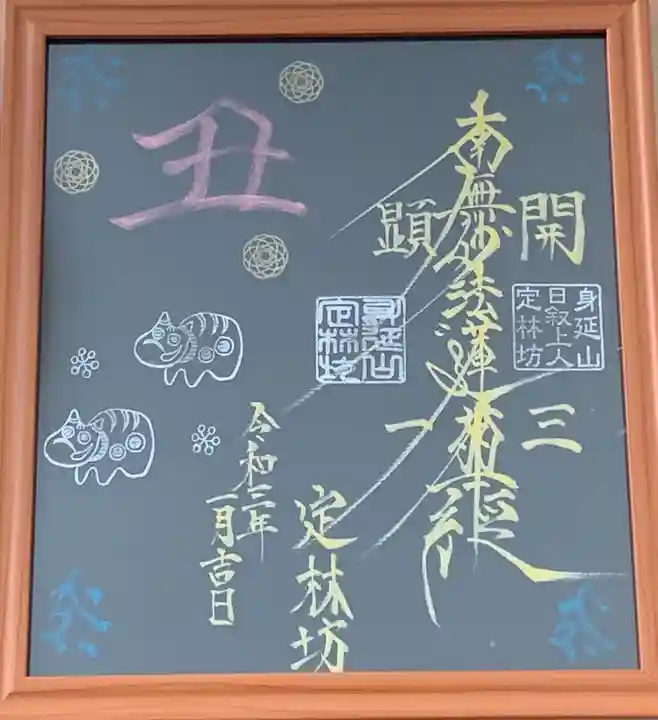 南無妙法蓮華経
開
三
顕
一
身延山
日叙上人
定林坊
身延山
定林坊
定林坊
令和三年
一月吉日
丑